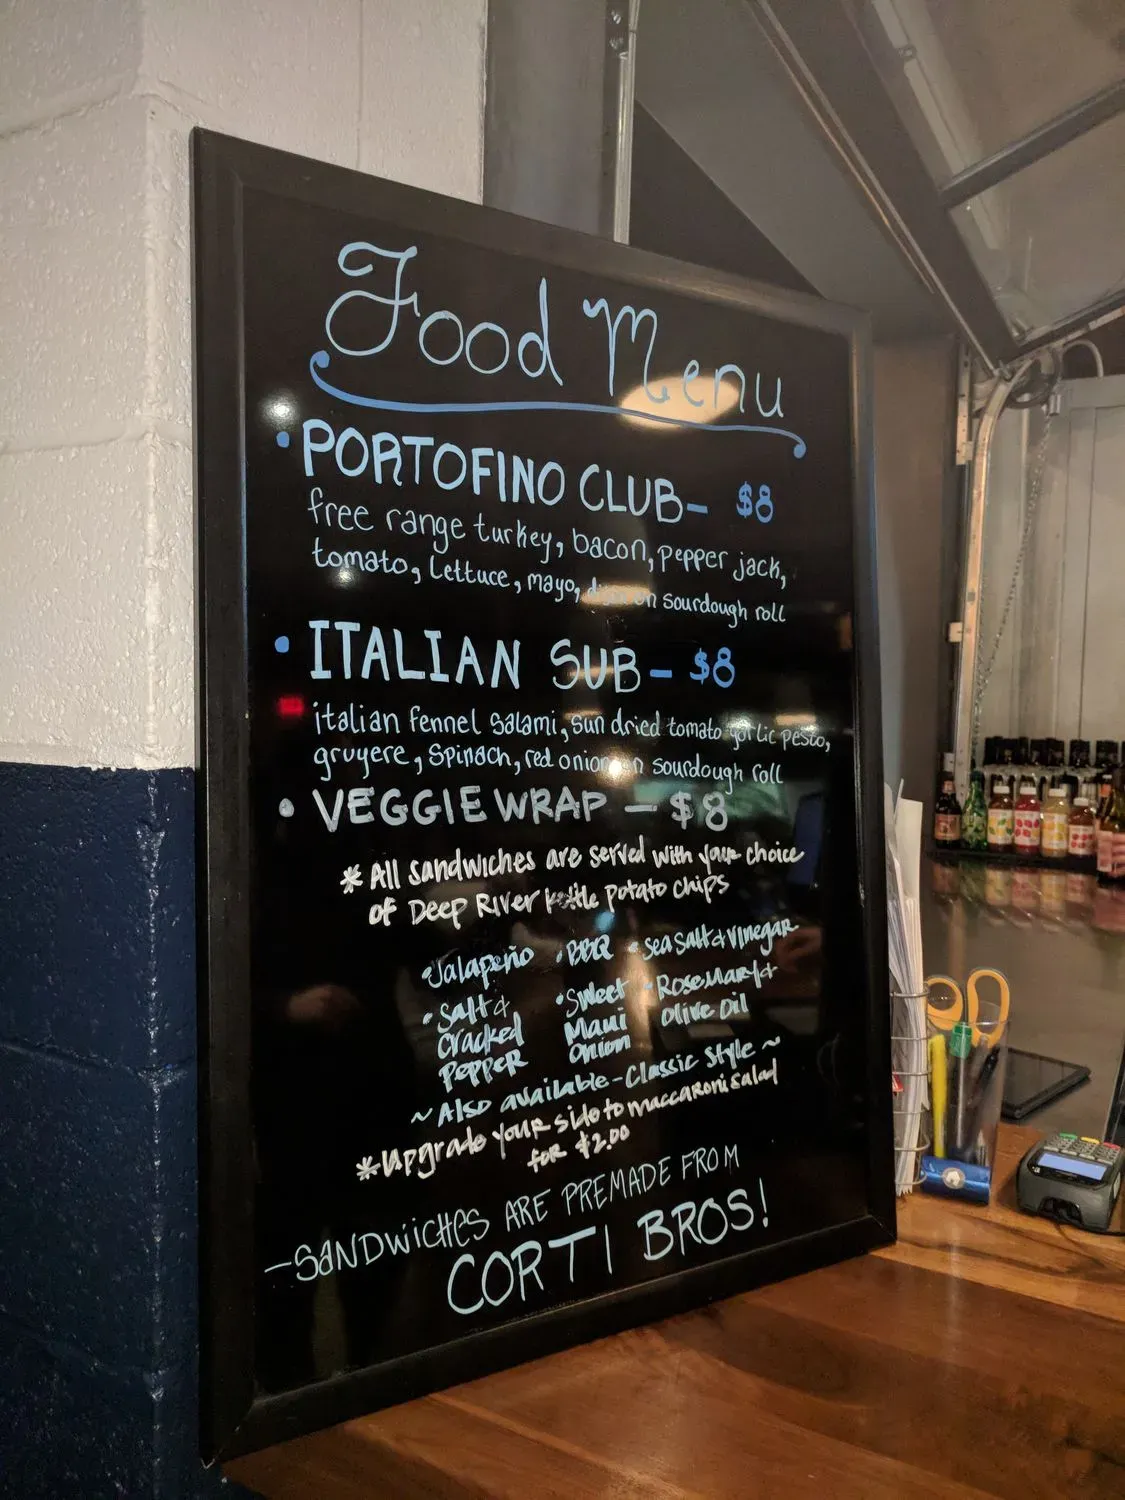 Food Menu
• PORTOFINO CLUB – $8
free range turkey, bacon, pepper jack,
tomato, lettuce, mayo, on sourdough roll
• ITALIAN SUB – $8
italian fennel salami, sun dried tomato garlic pesto,
gruyere, spinach, red onion on sourdough roll
• VEGGIE WRAP – $8
* All sandwiches are served with your choice
of Deep River kettle potato chips
• Jalapeño • BBQ • sea salt & vinegar
• Salt & • Sweet • Rosemary &
Cracked Maui Olive Oil
Pepper Onion
~ Also available – Classic Style ~
* upgrade your side to maccaroni salad
for $2.00
– SANDWICHES ARE PREMADE FROM
CORTI BROS!